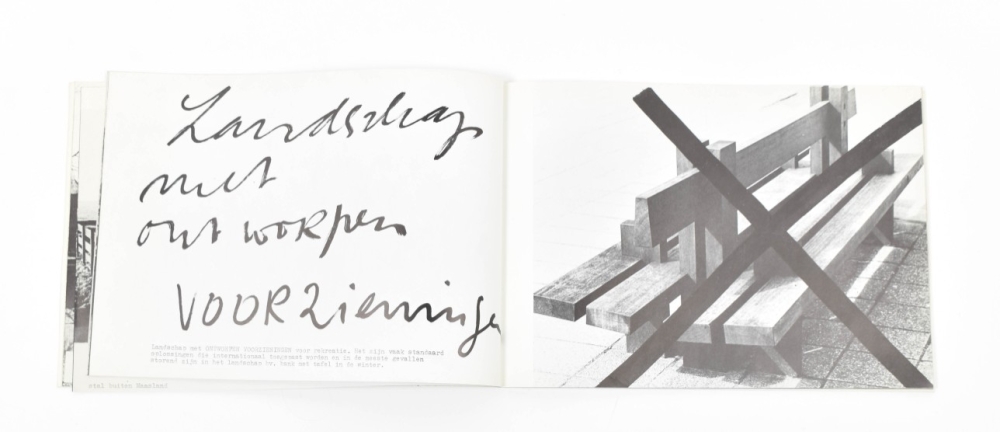 Landschap
met
ontworpen
VOORZieninge
landschap met ONTWORPEN VOORZIENINGEN voor rekreatie. Het zijn vaak standaard
oplossingen die internationaal toegepast worden en in de meeste gevallen
storend zijn in het landschap bv. bank met tafel in de winter.
stel buiten